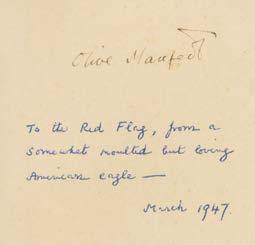 Olive
To the Red Flag, from a
somewhat moulted but loving
American eagle —
March 1947.